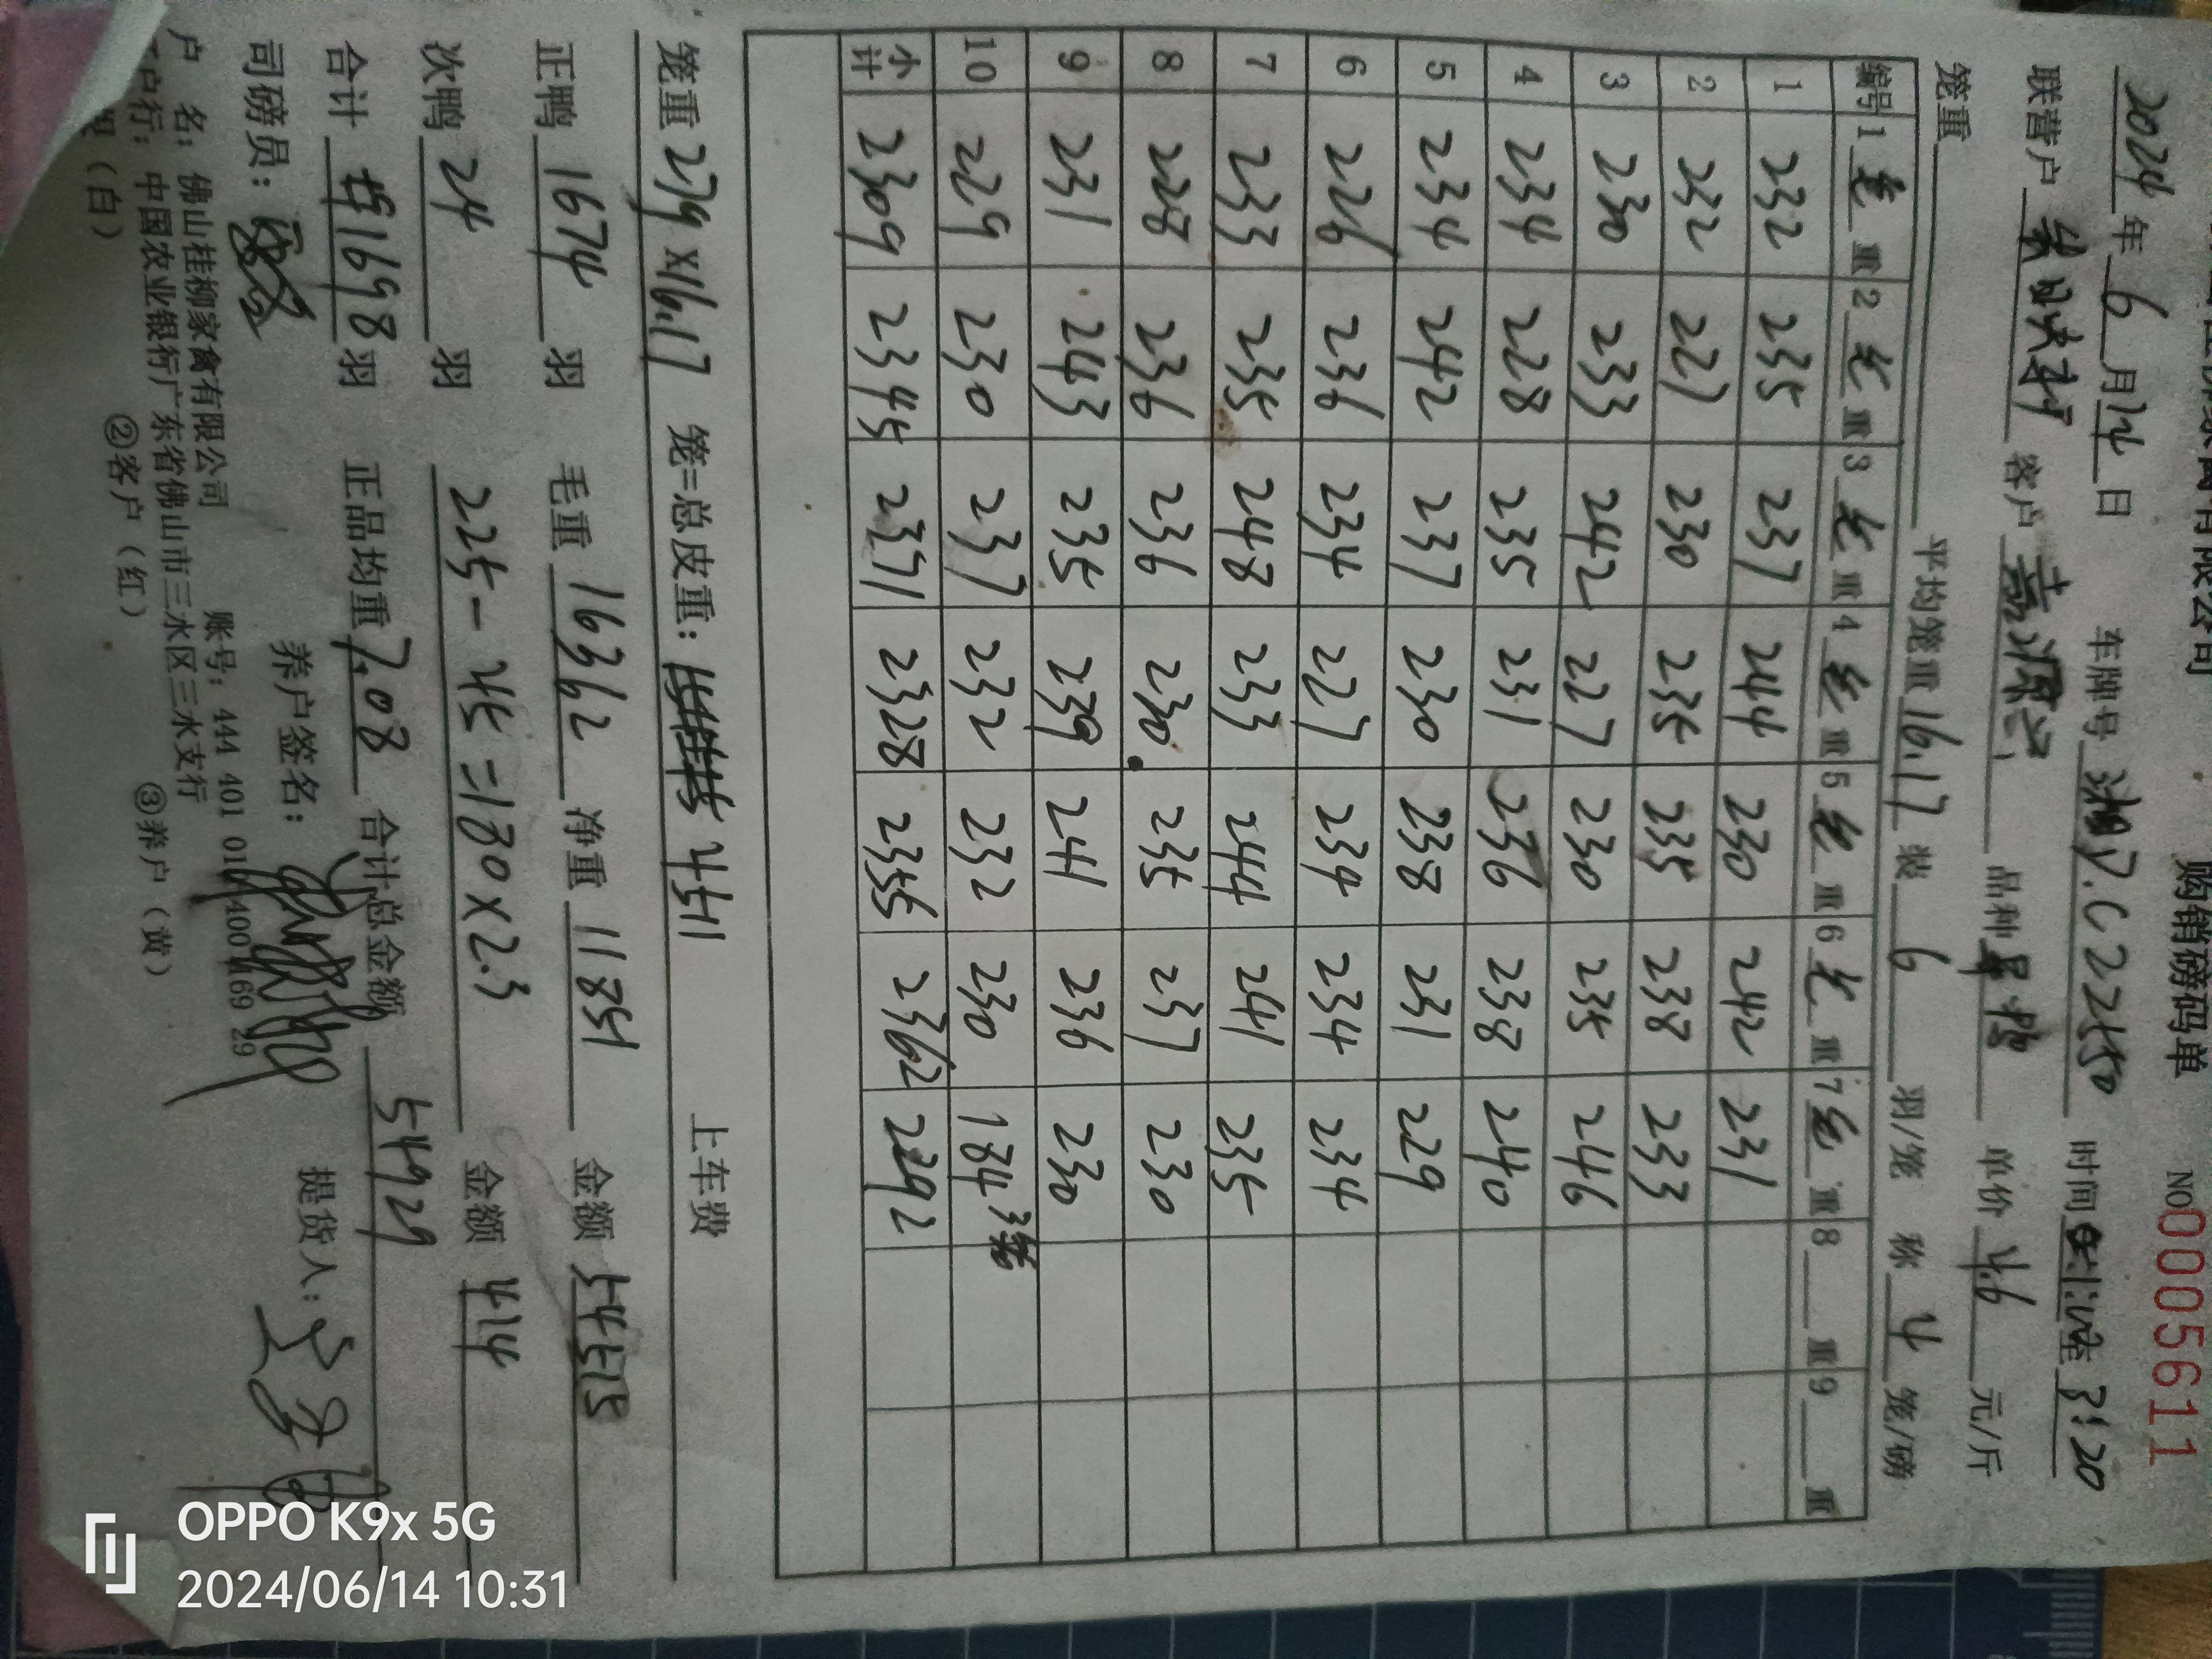 购销磅码单 NO 0005611
2024年6月14日 车牌号 时间 3:20
联营户 客户 品种 单价 4.6 元/斤
笼重 平均笼重 16.17 装 6 羽/笼 称 4 笼/磅
编号 1 重 2 重 3 重 4 重 5 重 6 重 7 重 8 重 9 重
1 232 235 237 244 230 242 231
2 232 227 230 235 235 238 233
3 230 233 242 227 230 235 246
4 234 228 235 231 236 238 240
5 234 242 237 230 238 231 229
6 226 236 234 227 234 234 234
7 233 235 248 233 244 241 235
8 228 236 236 230 235 237 230
9 231 243 235 239 241 236 230
10 229 230 237 232 232 230 184
小计 2309 2345 2371 2328 2355 2362 2292
笼重 279 x16.17 笼=总皮重: 4511 上车费
正鸭 1674 羽 毛重 16362 净重 11851 金额 54515
次鸭 24 羽 225-45=180×2.3 金额 414
合计 1698 羽 正品均重 7.08 合计总金额 54929
司磅员: 养户签名: 提货人:
户 名: 佛山桂柳家禽有限公司 账号: 444 401 010 400 29
户行: 中国农业银行广东省佛山市三水区三水支行
（白） ②客户（红） ③养户（黄）
OPPO K9x 5G
2024/06/14 10:31